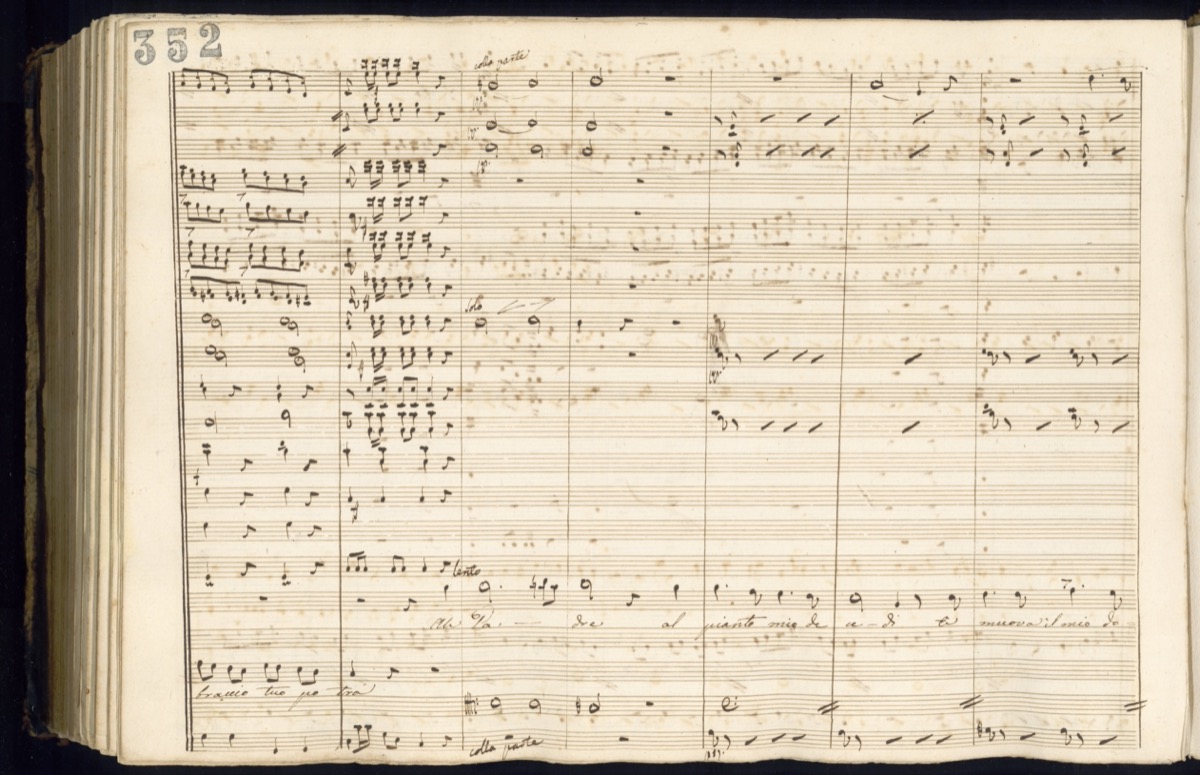 352
colla parte
Solo
lento
Ah Pa - dre al pianto mio de muova il mio do
braccio tuo po trà
colla parte